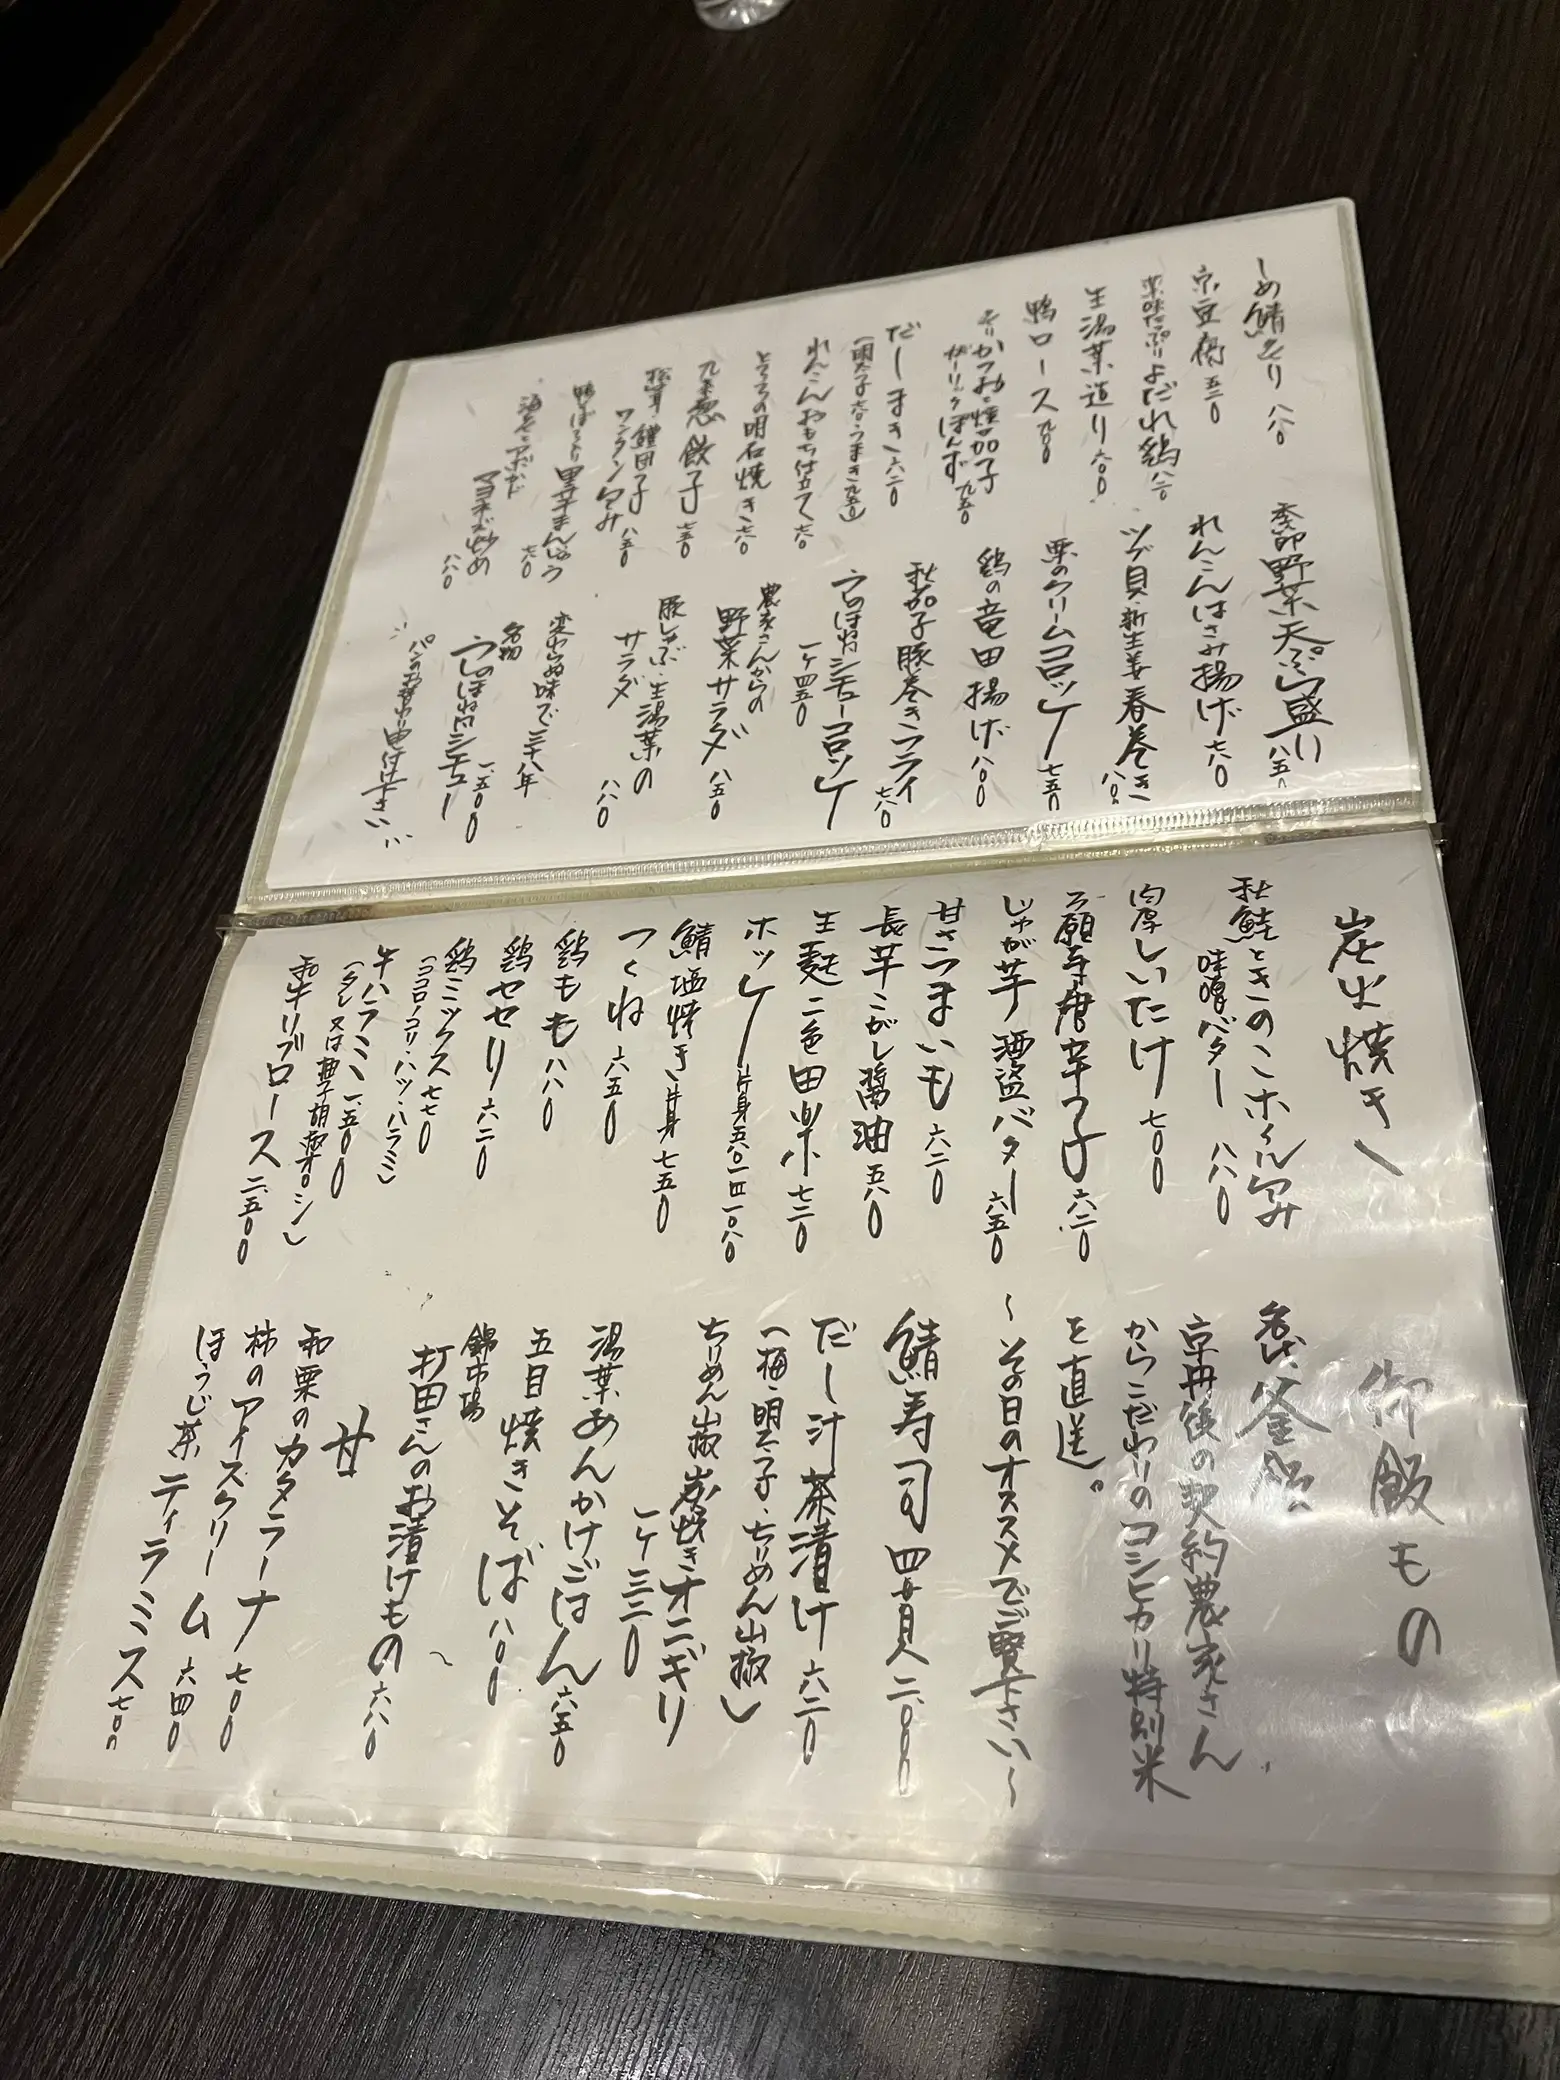 しめ鯖造り 八八〇
京豆腐 五二〇
薬味たっぷりよだれ鶏 八二〇
生湯葉造り 六〇〇
鴨ロース 九〇〇
そりかつおと焼茄子
ガーリックぽんず 九五〇
だしまき 六二〇
(明太子六八〇・うまき九五〇)
れんこんおもち仕立て 七六〇
とろろの明石焼き 七六〇
九条葱餃子 七五〇
松茸・鱧団子
ワンタン包み 八五〇
里芋まんじゅう 七八〇
海老とアボカド
マヨネーズ炒め 八八〇
季節野菜天ぷら盛り 八五〇
れんこんはさみ揚げ 七八〇
ツブ貝・新生姜春巻き 八八〇
栗のクリームコロッケ 七五〇
鶏の竜田揚げ 八〇〇
秋茄子豚巻きフライ 七八〇
うのほねシチューコロッケ
一ケ 四五〇
農家さんからの
野菜サラダ 八五〇
豚しゃぶ・生湯葉の
サラダ 八八〇
変わらぬ味で三十八年
名物
うしのほねシチュー 一、五〇〇
パンのお替わり申付下さい…
炭火焼き
秋鮭ときのこホイル包み
味噌バター 八八〇
肉厚しいたけ 七〇〇
万願寺唐辛子 六二〇
じゃが芋 酒盗バター 六五〇
甘さつまいも 六二〇
長芋こがし醤油 五八〇
生麩二色田楽 七二〇
ホッケ 片身五八〇 一匹一〇八〇
鯖塩焼き 片身 七五〇
つくね 六五〇
鶏もも 八八〇
鶏セセリ 六二〇
鶏ミックス 七七〇
(ココロ・コリ・ハツ・ハラミ)
牛ハラミ 一、五〇〇
(タレ又は柚子胡椒オロシ)
和牛リブロース 二、五〇〇
御飯もの
名代 釜飯
京丹後の契約農家さん
からこだわりのコシヒカリ特別米
を直送。
〜その日のオススメでご賢下さい〜
鯖寿司 四貫 二、〇〇〇
だし汁茶漬け 六二〇
(梅・明太子・ちりめん山椒)
ちりめん山椒炭焼きオニギリ
一ケ 三三〇
湯葉あんかけごはん 六五〇
五目焼きそば 八〇〇
錦市場
打田さんのお漬けもの 六八〇
甘
和栗のカタラーナ 七〇〇
柿のアイスクリーム 六四〇
ほうじ茶ティラミス 七〇〇